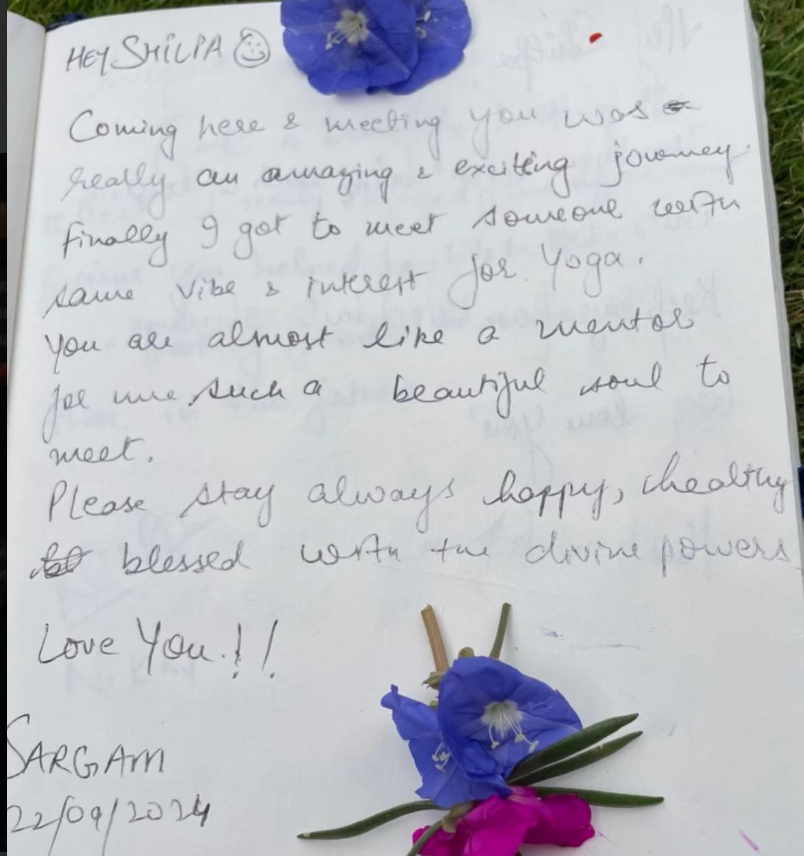 HEY SHILPA
Coming here & meeting you was
really an amazing & exciting journey.
finally I got to meet someone with
same vibe & interest for Yoga.
You are almost like a mentor
for me, such a beautiful soul to
meet.
Please stay always happy, healthy
blessed with the divine powers
Love You.!!
SARGAM
22/09/2024